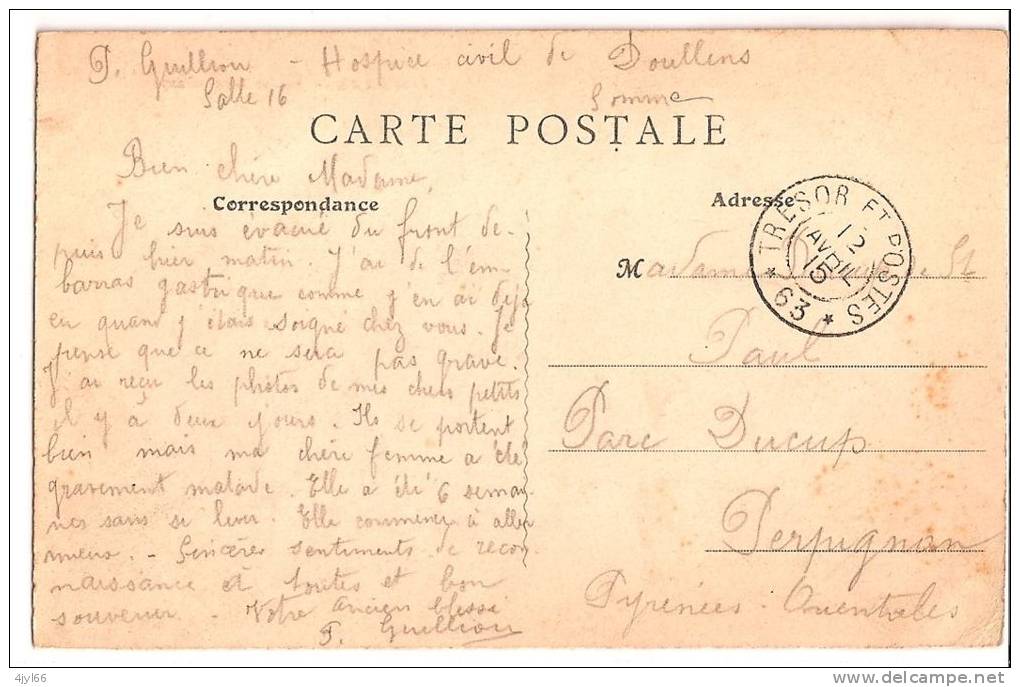 P. Guillion - Hospice civil de Doullens
Salle 16 Somme
CARTE POSTALE
Bien chère Madame,
Correspondance
Adresse
TRESOR ET POSTES
12
AVRIL
15
* 63 *
Je suis évacué du front de-
puis hier matin. J'ai de l'em-
barras gastrique comme j'en ai déjà
eu quand j'étais soigné chez vous. Je
pense que ce ne sera pas grave.
J'ai reçu les photos de mes chers petits
il y à deux jours. Ils se portent
bien mais ma chère femme a été
gravement malade. Elle a été 6 semai-
nes sans se lever. Elle commence à aller
mieux. - Sincères sentiments de recon-
naissance et toutes et bon
souvenir. - Votre ancien blessé
P. Guillion
Madame St
Paul
Parc Ducup
Perpignan
Pyrénées-Orientales
4jyl66
www.delcampe.net